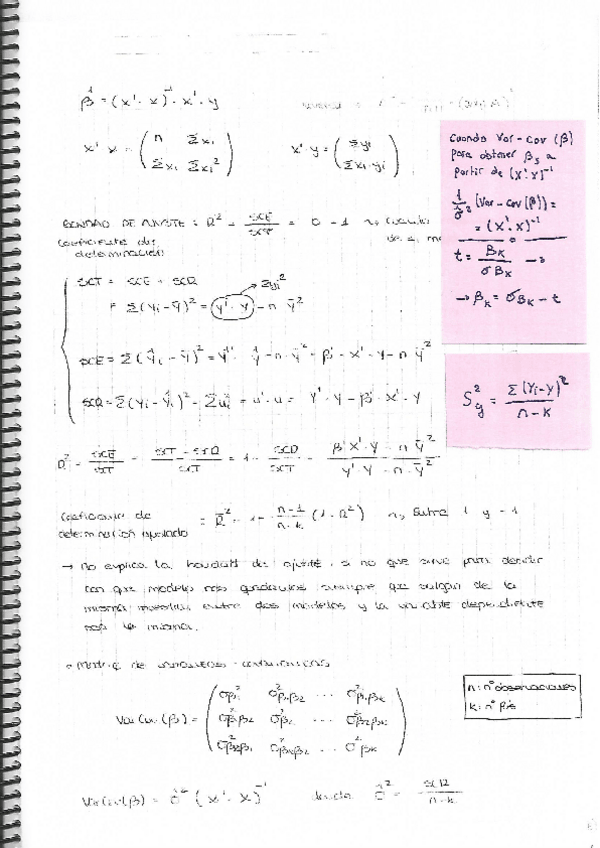 β̂ = (X'·X)⁻¹·X'·Y
X'·X = ( n Σxi ; Σxi Σxi² )   X'·Y = ( Σyi ; Σxi·yi )
Cuando Var-Cov (β)
para obtener βs a
partir de (X'X)⁻¹
1/σ² (Var-Cov(β)) =
= (X'·X)⁻¹
t = βk / σβk →
→ βk = σβk - t
BONDAD DE AJUSTE: R² = SCE/SCT = 0 - 1
Coeficiente de
determinación
SCT = SCE + SCR
= Σ(Yi - Ȳ)² = Y'·Y - n Ȳ²   → Σyi²
SCE = Σ(Ŷi - Ȳ)² = Ŷ'·Ŷ - n·Ȳ² = β'·X'·Y - n Ȳ²
SCR = Σ(Yi - Ŷi)² = Σui² = u'·u = Y'·Y - β'·X'·Y
S²y = Σ(Yi-Y)² / n-k
R² = SCE/SCT = SCT - SCR / SCT = 1 - SCR/SCT = β'X'·Y - n Ȳ² / Y'·Y - n·Ȳ²
Coeficiente de
determinación ajustado = R̄² = 1 - n-1/n-k (1-R²) Entre 1 y -1
→ No explica la bondad de ajuste, si no que sirve para decidir
con que modelo nos quedamos siempre que salgan de la
misma muestra entre dos modelos y la variable dependiente
sea la misma.
Matriz de varianzas-covarianzas
Var Cov (β) = ( σ²β1 σ²β1β2 ... σ²β1βk ; σ²β1β2 σ²β2 ... σ²β2βk ; σ²βkβ1 σ²βkβ2 ... σ²βk )
n: nº observaciones
k: nº βs
Var Cov (β) = σ̂² (X'·X)⁻¹   donde σ̂² = SCR / n-k